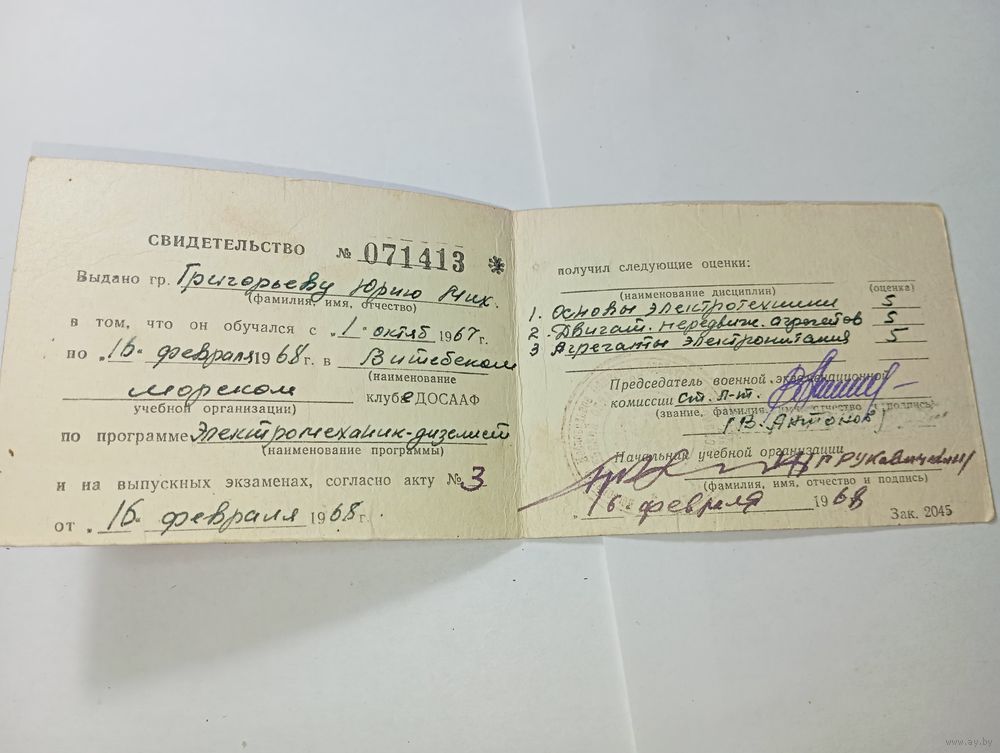 СВИДЕТЕЛЬСТВО № 071413
Выдано гр. Григорьеву Юрию Мих.
(фамилия, имя, отчество)
в том, что он обучался с „1“ октяб 1967г.
по „16“ февраля 1968г. в Витебском
(наименование
морском клубе ДОСААФ
учебной организации)
по программе Электромеханик-дизелист
(наименование программы)
и на выпускных экзаменах, согласно акту № 3
от „16“ февраля 1968г.
получил следующие оценки:
(наименование дисциплин) (оценка)
1. Основы электротехники 5
2. Двигат. передвиж. агрегатов 5
3 Агрегаты электропитания 5
Председатель военной экзаменационной
комиссии ст. л-т.
(звание, фамилия, имя, отчество, подпись)
В. Антонов
Начальник учебной организации
(фамилия, имя, отчество и подпись)
„16“ февраля 1968
Зак. 2045
www.ay.by